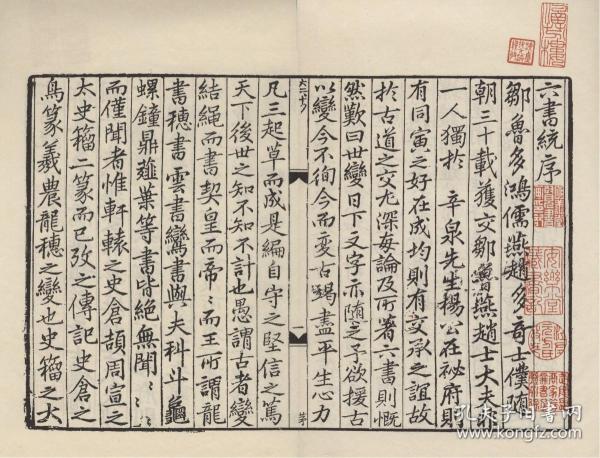 六書統序
鄒魯多鴻儒燕趙多奇士僕隨
朝三十載獲交鄒魯燕趙士大夫
一人獨於 辛泉先生楊公在祕府則
有同寅之好在成均則有交承之誼故
於古道之交尤深每論及所著六書則慨
然歎曰世變日下文字亦隨之予欲援古
以變今不徇今而变古竭盡平生心力
凡三起草而成是編自守之堅信之篤
天下後世之知不知不計也愚謂古者變
結繩而書契皇而帝〻而王所謂龍
書穗書雲書鸞書與夫科斗龜
螺鐘鼎薤葉等書皆絕無聞〻〻
而僅聞者惟軒轅之史倉頡周宣之
太史籀二篆而已攷之傳記史倉之
鳥篆羲農龍穗之變也史籀之大
孔夫子旧书网
www.kongfz.com